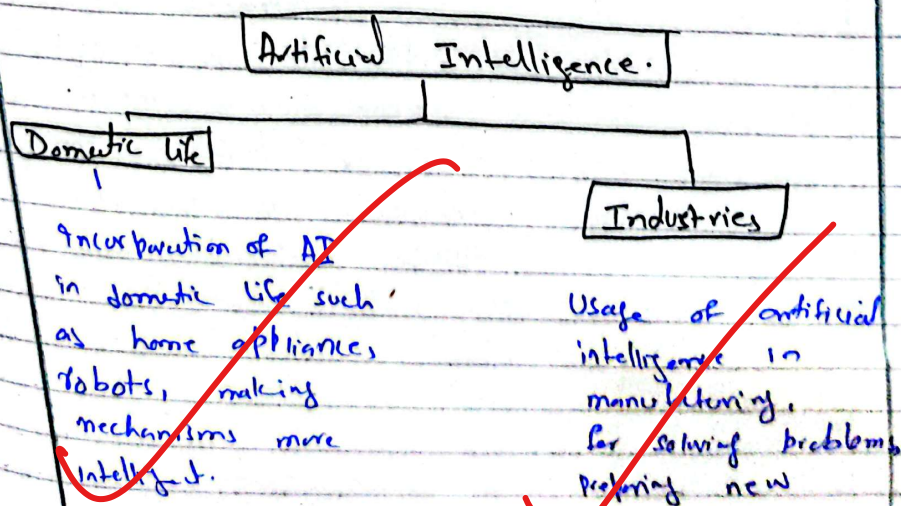 Artificial Intelligence.
Domestic life
Industries
Incorporation of AI
in domestic life such
as home appliances,
robots, making
mechanisms more
intelligent.
Usage of artificial
intelligence in
manufacturing,
for solving problems
preparing new